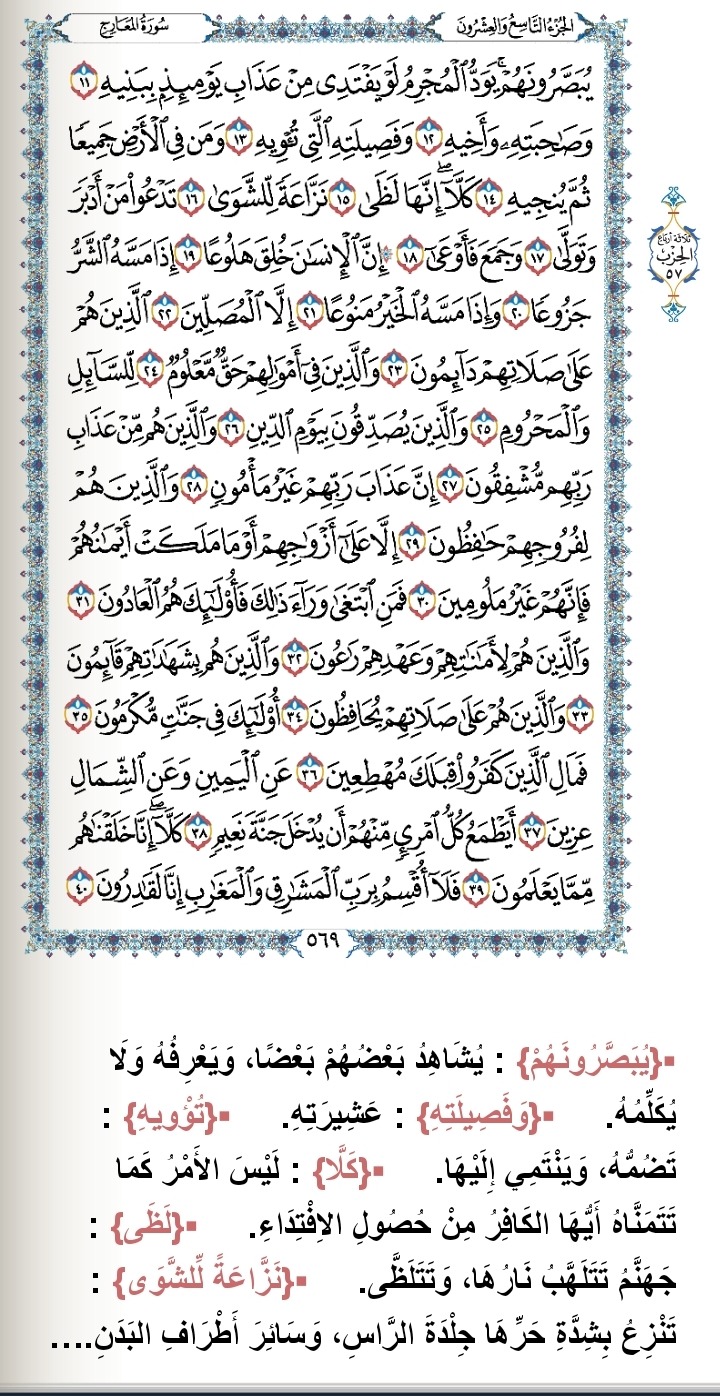 الجُزْءُ التَّاسِعُ وَالعِشْرُونَ
سُورَةُ المَعَارِجِ
يُبَصَّرُونَهُمۡۚ يَوَدُّ ٱلۡمُجۡرِمُ لَوۡ يَفۡتَدِي مِنۡ عَذَابِ يَوۡمِئِذِۭ بِبَنِيهِ ١١
وَصَٰحِبَتِهِۦ وَأَخِيهِ ١٢ وَفَصِيلَتِهِ ٱلَّتِي تُـٔۡوِيهِ ١٣ وَمَن فِي ٱلۡأَرۡضِ جَمِيعٗا
ثُمَّ يُنجِيهِ ١٤ كَلَّآۖ إِنَّهَا لَظَىٰ ١٥ نَزَّاعَةٗ لِّلشَّوَىٰ ١٦ تَدۡعُواْ مَنۡ أَدۡبَرَ
وَتَوَلَّىٰ ١٧ وَجَمَعَ فَأَوۡعَىٰٓ ١٨ ۞ إِنَّ ٱلۡإِنسَٰنَ خُلِقَ هَلُوعًا ١٩ إِذَا مَسَّهُ ٱلشَّرُّ
جَزُوعٗا ٢٠ وَإِذَا مَسَّهُ ٱلۡخَيۡرُ مَنُوعًا ٢١ إِلَّا ٱلۡمُصَلِّينَ ٢٢ ٱلَّذِينَ هُمۡ
عَلَىٰ صَلَاتِهِمۡ دَآئِمُونَ ٢٣ وَٱلَّذِينَ فِيٓ أَمۡوَٰلِهِمۡ حَقّٞ مَّعۡلُومٞ ٢٤ لِّلسَّآئِلِ
وَٱلۡمَحۡرُومِ ٢٥ وَٱلَّذِينَ يُصَدِّقُونَ بِيَوۡمِ ٱلدِّينِ ٢٦ وَٱلَّذِينَ هُم مِّنۡ عَذَابِ
رَبِّهِم مُّشۡفِقُونَ ٢٧ إِنَّ عَذَابَ رَبِّهِمۡ غَيۡرُ مَأۡمُونٖ ٢٨ وَٱلَّذِينَ هُمۡ
لِفُرُوجِهِمۡ حَٰفِظُونَ ٢٩ إِلَّا عَلَىٰٓ أَزۡوَٰجِهِمۡ أَوۡ مَا مَلَكَتۡ أَيۡمَٰنُهُمۡ
فَإِنَّهُمۡ غَيۡرُ مَلُومِينَ ٣٠ فَمَنِ ٱبۡتَغَىٰ وَرَآءَ ذَٰلِكَ فَأُوْلَٰٓئِكَ هُمُ ٱلۡعَادُونَ ٣١
وَٱلَّذِينَ هُمۡ لِأَمَٰنَٰتِهِمۡ وَعَهۡدِهِمۡ رَٰعُونَ ٣٢ وَٱلَّذِينَ هُم بِشَهَٰدَٰتِهِمۡ قَآئِمُونَ
٣٣ وَٱلَّذِينَ هُمۡ عَلَىٰ صَلَاتِهِمۡ يُحَافِظُونَ ٣٤ أُوْلَٰٓئِكَ فِي جَنَّٰتٖ مُّكۡرَمُونَ ٣٥
فَمَالِ ٱلَّذِينَ كَفَرُواْ قِبَلَكَ مُهۡطِعِينَ ٣٦ عَنِ ٱلۡيَمِينِ وَعَنِ ٱلشِّمَالِ
عِزِينَ ٣٧ أَيَطۡمَعُ كُلُّ ٱمۡرِيٕٖ مِّنۡهُمۡ أَن يُدۡخَلَ جَنَّةَ نَعِيمٖ ٣٨ كَلَّآۖ إِنَّا خَلَقۡنَٰهُم
مِّمَّا يَعۡلَمُونَ ٣٩ فَلَآ أُقۡسِمُ بِرَبِّ ٱلۡمَشَٰرِقِ وَٱلۡمَغَٰرِبِ إِنَّا لَقَٰدِرُونَ ٤٠
ثلاثة أرباع
الحزب
٥٧
٥٦٩
▪{يُبَصَّرُونَهُمْ} : يُشَاهِدُ بَعْضُهُمْ بَعْضًا، وَيَعْرِفُهُ وَلَا
يُكَلِّمُهُ. ▪{وَفَصِيلَتِهِ} : عَشِيرَتِهِ. ▪{تُؤْوِيهِ} :
تَضُمُّهُ، وَيَنْتَمِي إِلَيْهَا. ▪{كَلَّا} : لَيْسَ الأَمْرُ كَمَا
تَتَمَنَّاهُ أَيُّهَا الكَافِرُ مِنْ حُصُولِ الاِفْتِدَاءِ. ▪{لَظَى} :
جَهَنَّمُ تَتَلَهَّبُ نَارُهَا، وَتَتَلَظَّى. ▪{نَزَّاعَةً لِّلشَّوَى} :
تَنْزِعُ بِشِدَّةِ حَرِّهَا جِلْدَةَ الرَّاسِ، وَسَائِرَ أَطْرَافِ البَدَنِ....